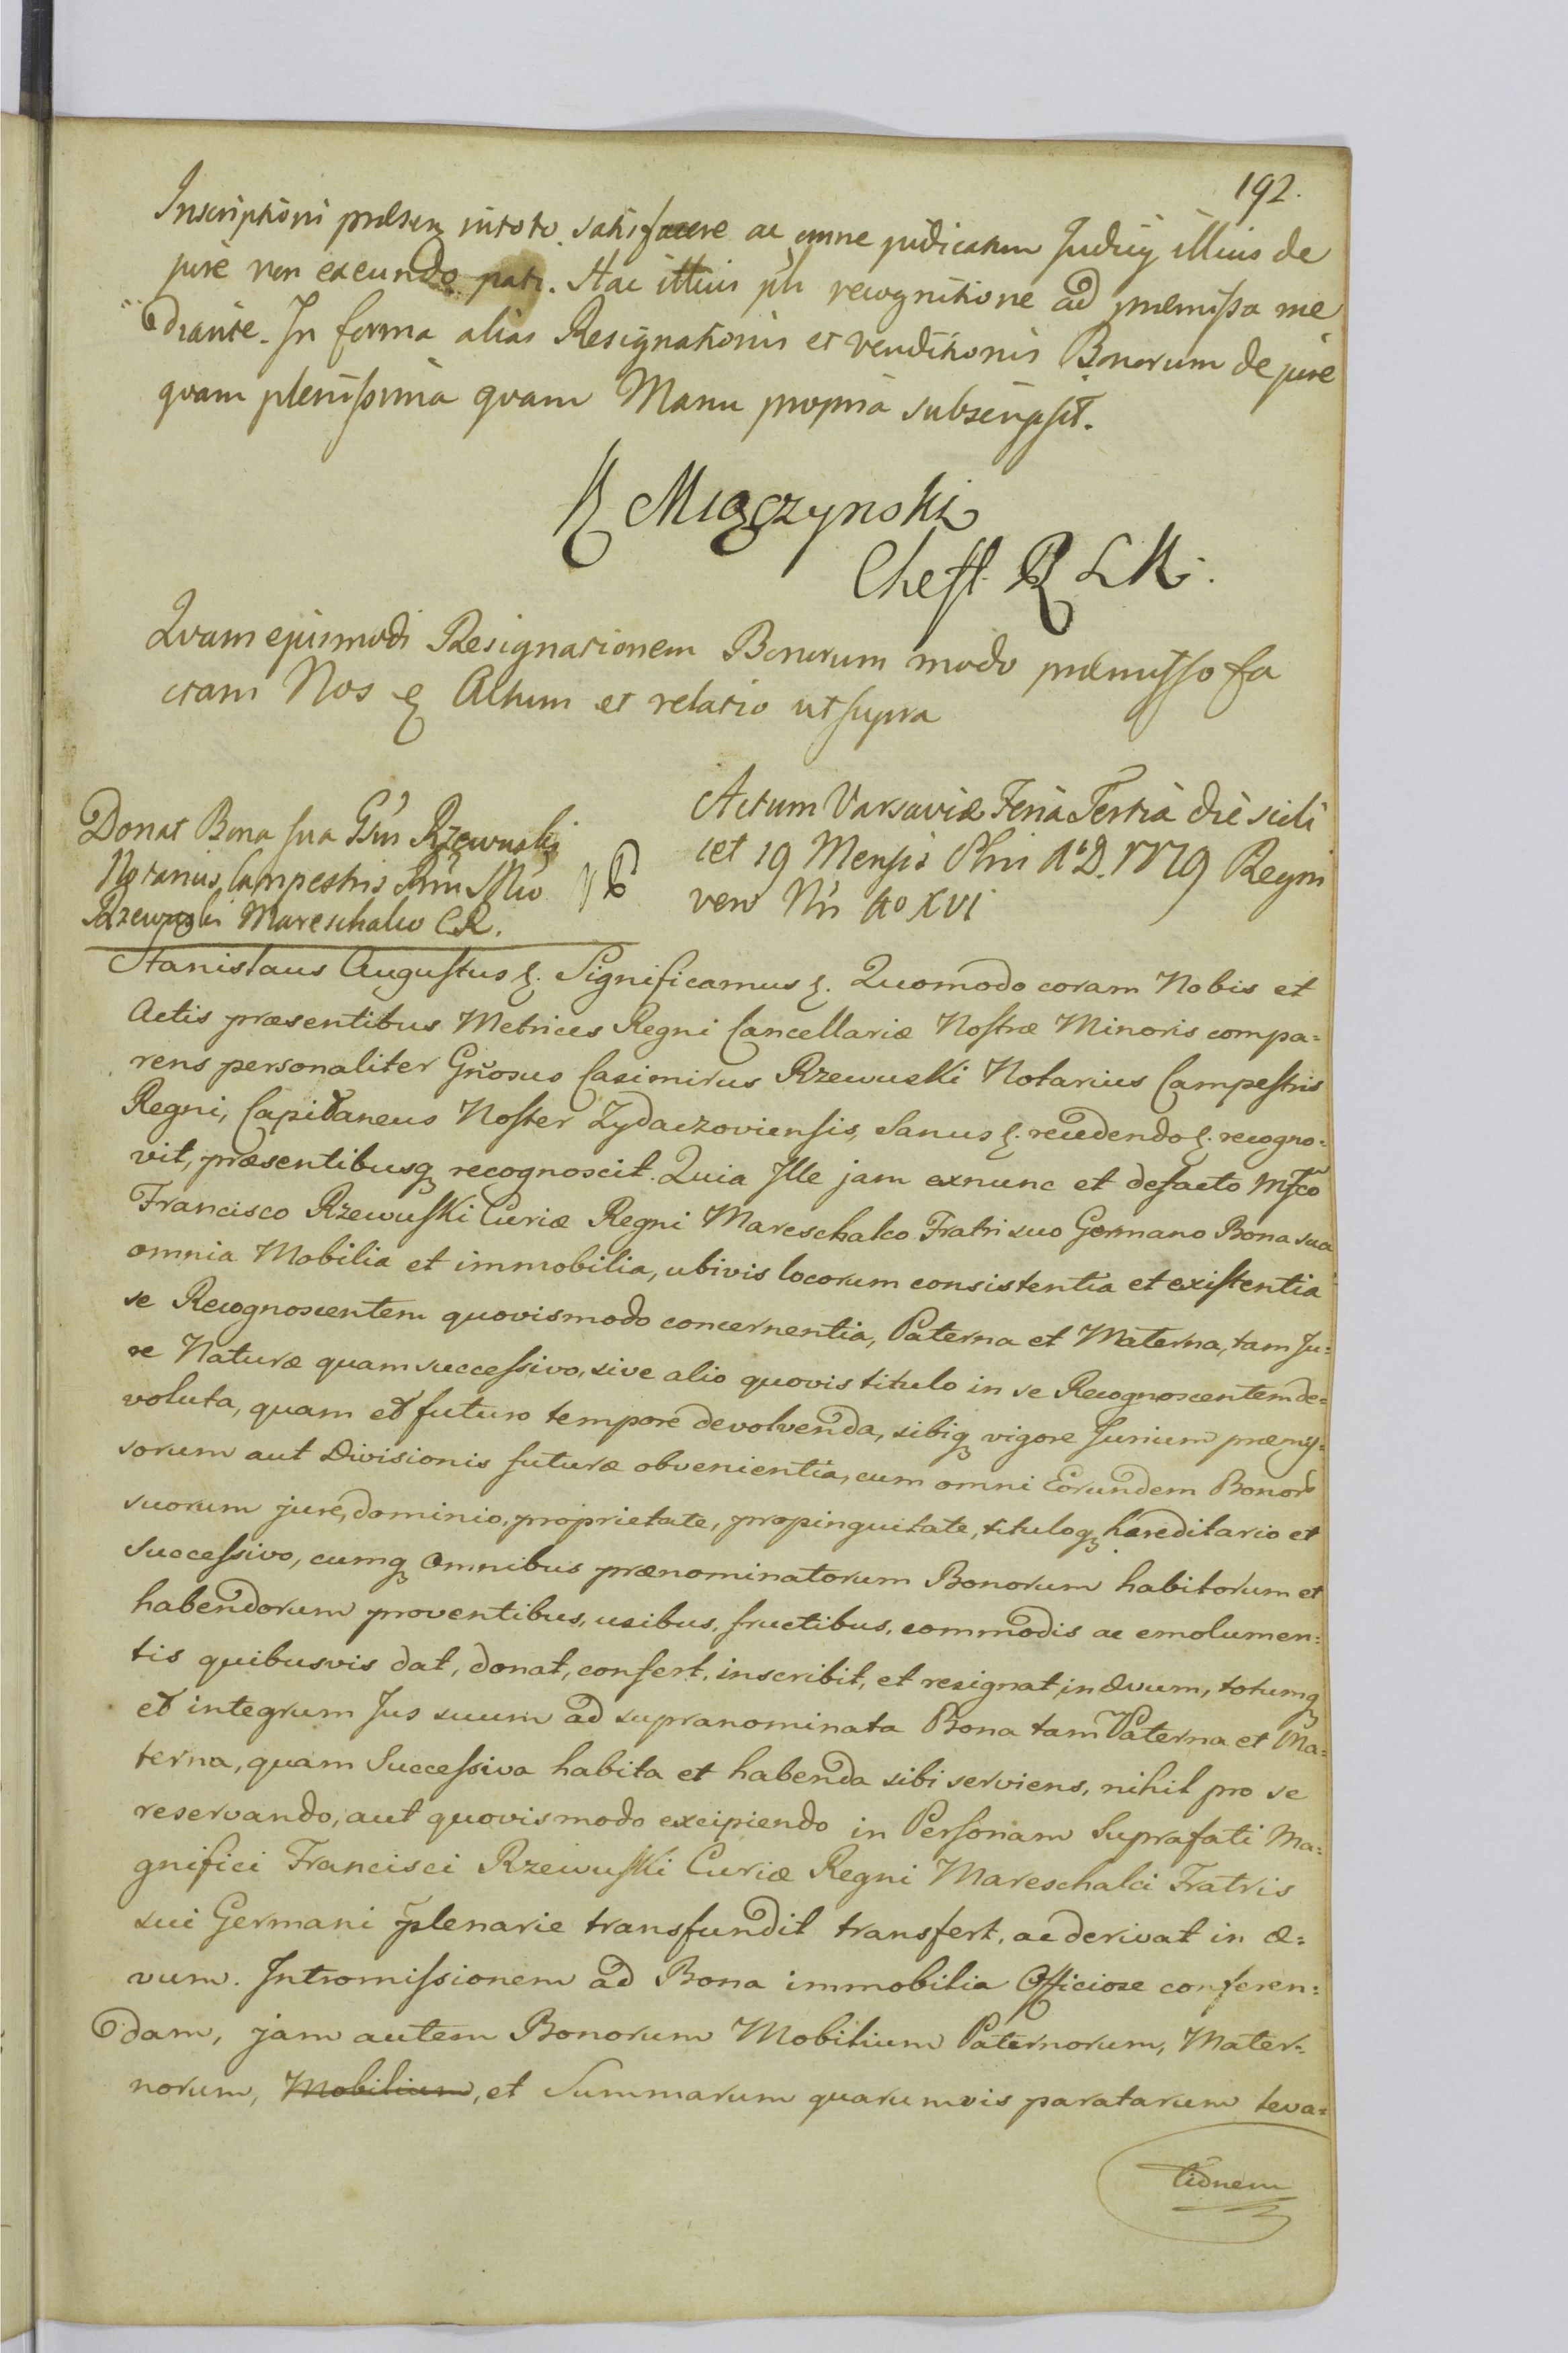 192.
Inscriptioni præsenti in toto satisfacere ac omne judicatum Judicij illius de
jure non exeundo pati. Hac illius recognitione ad præmissa me
diante. In forma alias Resignationis et venditionis Bonorum de jure
quam plenissima quam Manu propria subscripsit.
Miączynski
Quam ejusmodi Resignationem Bonorum modo præmisso fa
ctam Nos Actum et relatio ut supra
Donat Bona sua Rzewuski
Notarius Campestris
Rzewuski Mareschalco C.R.
Actum Varsaviæ Feria Tertia die scili
cet 19 Mensis A.D. 1779 Regni
vero XVI
Stanislaus Augustus Significamus Quomodo coram Nobis et
Actis præsentibus Metrices Regni Cancellariæ Nostræ Minoris compa=
rens personaliter Gñosus Casimirus Rzewuski Notarius Campestris
Regni, Capitaneus Noster Zydaczoviensis, Sanus recedendo recogno=
vit, præsentibusq recognoscit. Quia Ille jam exnunc et defacto Mfco
Francisco Rzewuski Curiæ Regni Mareschalco Fratri suo Germano Bona sua
omnia Mobilia et immobilia, ubivis locorum consistentia et existentia
se Recognoscentem quovismodo concernentia, Paterna et Materna, tam Ju=
re Naturæ quam successivo, sive alio quovis titulo in se Recognoscentem de=
voluta, quam et futuro tempore devolvenda, sibiq vigore Jurium præmis=
sorum aut Divisionis futuræ obvenientia, cum omni Eorundem Bonor
suorum jure, dominio, proprietate, propinquitate, tituloq hæreditario et
Successivo, cumq Omnibus prænominatorum Bonorum habitorum et
habendorum proventibus, usibus, fructibus, commodis ac emolumen=
tis quibusvis dat, donat, confert, inscribit, et resignat in ævum, totumq
et integrum Jus suum ad supranominata Bona tam Paterna et Ma=
terna, quam Successiva habita et habenda sibi serviens, nihil pro se
reservando, aut quovismodo excipiendo in Personam Suprafati Ma=
gnifici Francisci Rzewuski Curiæ Regni Mareschalci Fratris
sui Germani plenarie transfundit transfert, ac derivat in æ=
vum. Intromissionem ad Bona immobilia Officiose conferen=
dam, jam autem Bonorum Mobilium Paternorum, Mater=
norum, Mobilium, et Summarum quarumvis paratarum leva=
tionem